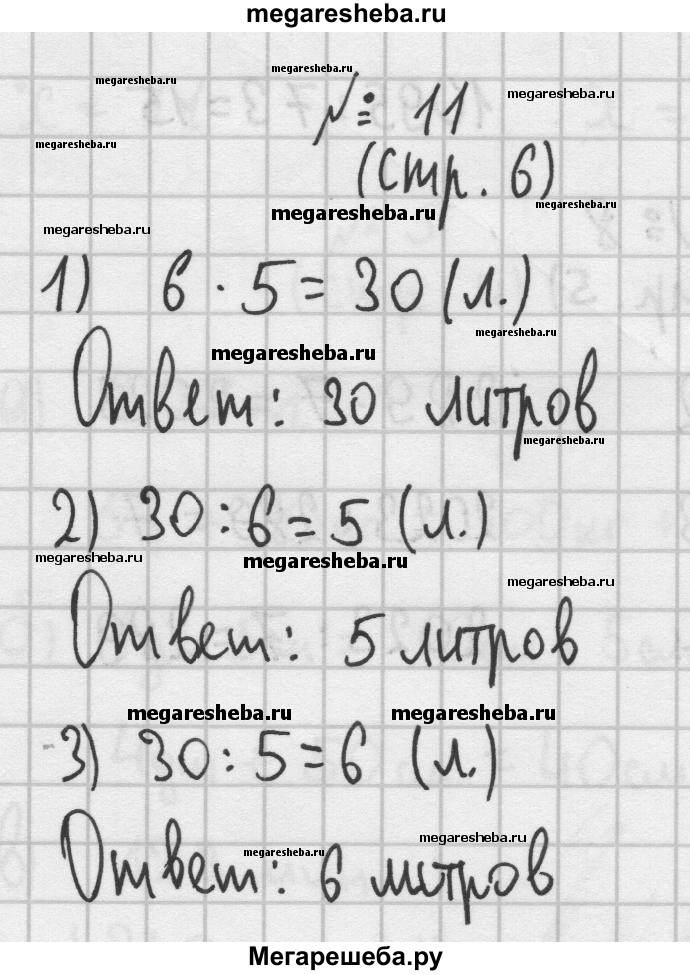 megaresheba.ru
megaresheba.ru
megaresheba.ru
№ 11
megaresheba.ru
megaresheba.ru
(стр. 6)
megaresheba.ru
megaresheba.ru
megaresheba.ru
1) 6 · 5 = 30 (л.)
megaresheba.ru
megaresheba.ru
Ответ: 30 литров
megaresheba.ru
2) 30 : 6 = 5 (л.)
megaresheba.ru
megaresheba.ru
megaresheba.ru
Ответ: 5 литров
megaresheba.ru
megaresheba.ru
3) 30 : 5 = 6 (л.)
megaresheba.ru
megaresheba.ru
Ответ: 6 литров
Мегарешеба.ру